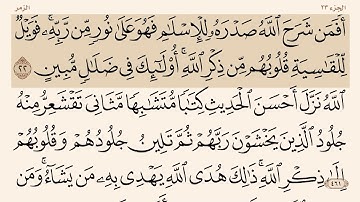 الجزء ٢٣ الزمر
أَفَمَن شَرَحَ ٱللَّهُ صَدْرَهُۥ لِلْإِسْلَٰمِ فَهُوَ عَلَىٰ نُورٍ مِّن رَّبِّهِۦ ۚ فَوَيْلٌ
لِّلْقَٰسِيَةِ قُلُوبُهُم مِّن ذِكْرِ ٱللَّهِ ۚ أُو۟لَٰٓئِكَ فِى ضَلَٰلٍ مُّبِينٍ ٢٢
ٱللَّهُ نَزَّلَ أَحْسَنَ ٱلْحَدِيثِ كِتَٰبًا مُّتَشَٰبِهًا مَّثَانِىَ تَقْشَعِرُّ مِنْهُ
جُلُودُ ٱلَّذِينَ يَخْشَوْنَ رَبَّهُمْ ثُمَّ تَلِينُ جُلُودُهُمْ وَقُلُوبُهُمْ
إِلَىٰ ذِكْرِ ٱللَّهِ ۚ ذَٰلِكَ هُدَى ٱللَّهِ يَهْدِى بِهِۦ مَن يَشَآءُ ۚ وَمَن
٤٦١